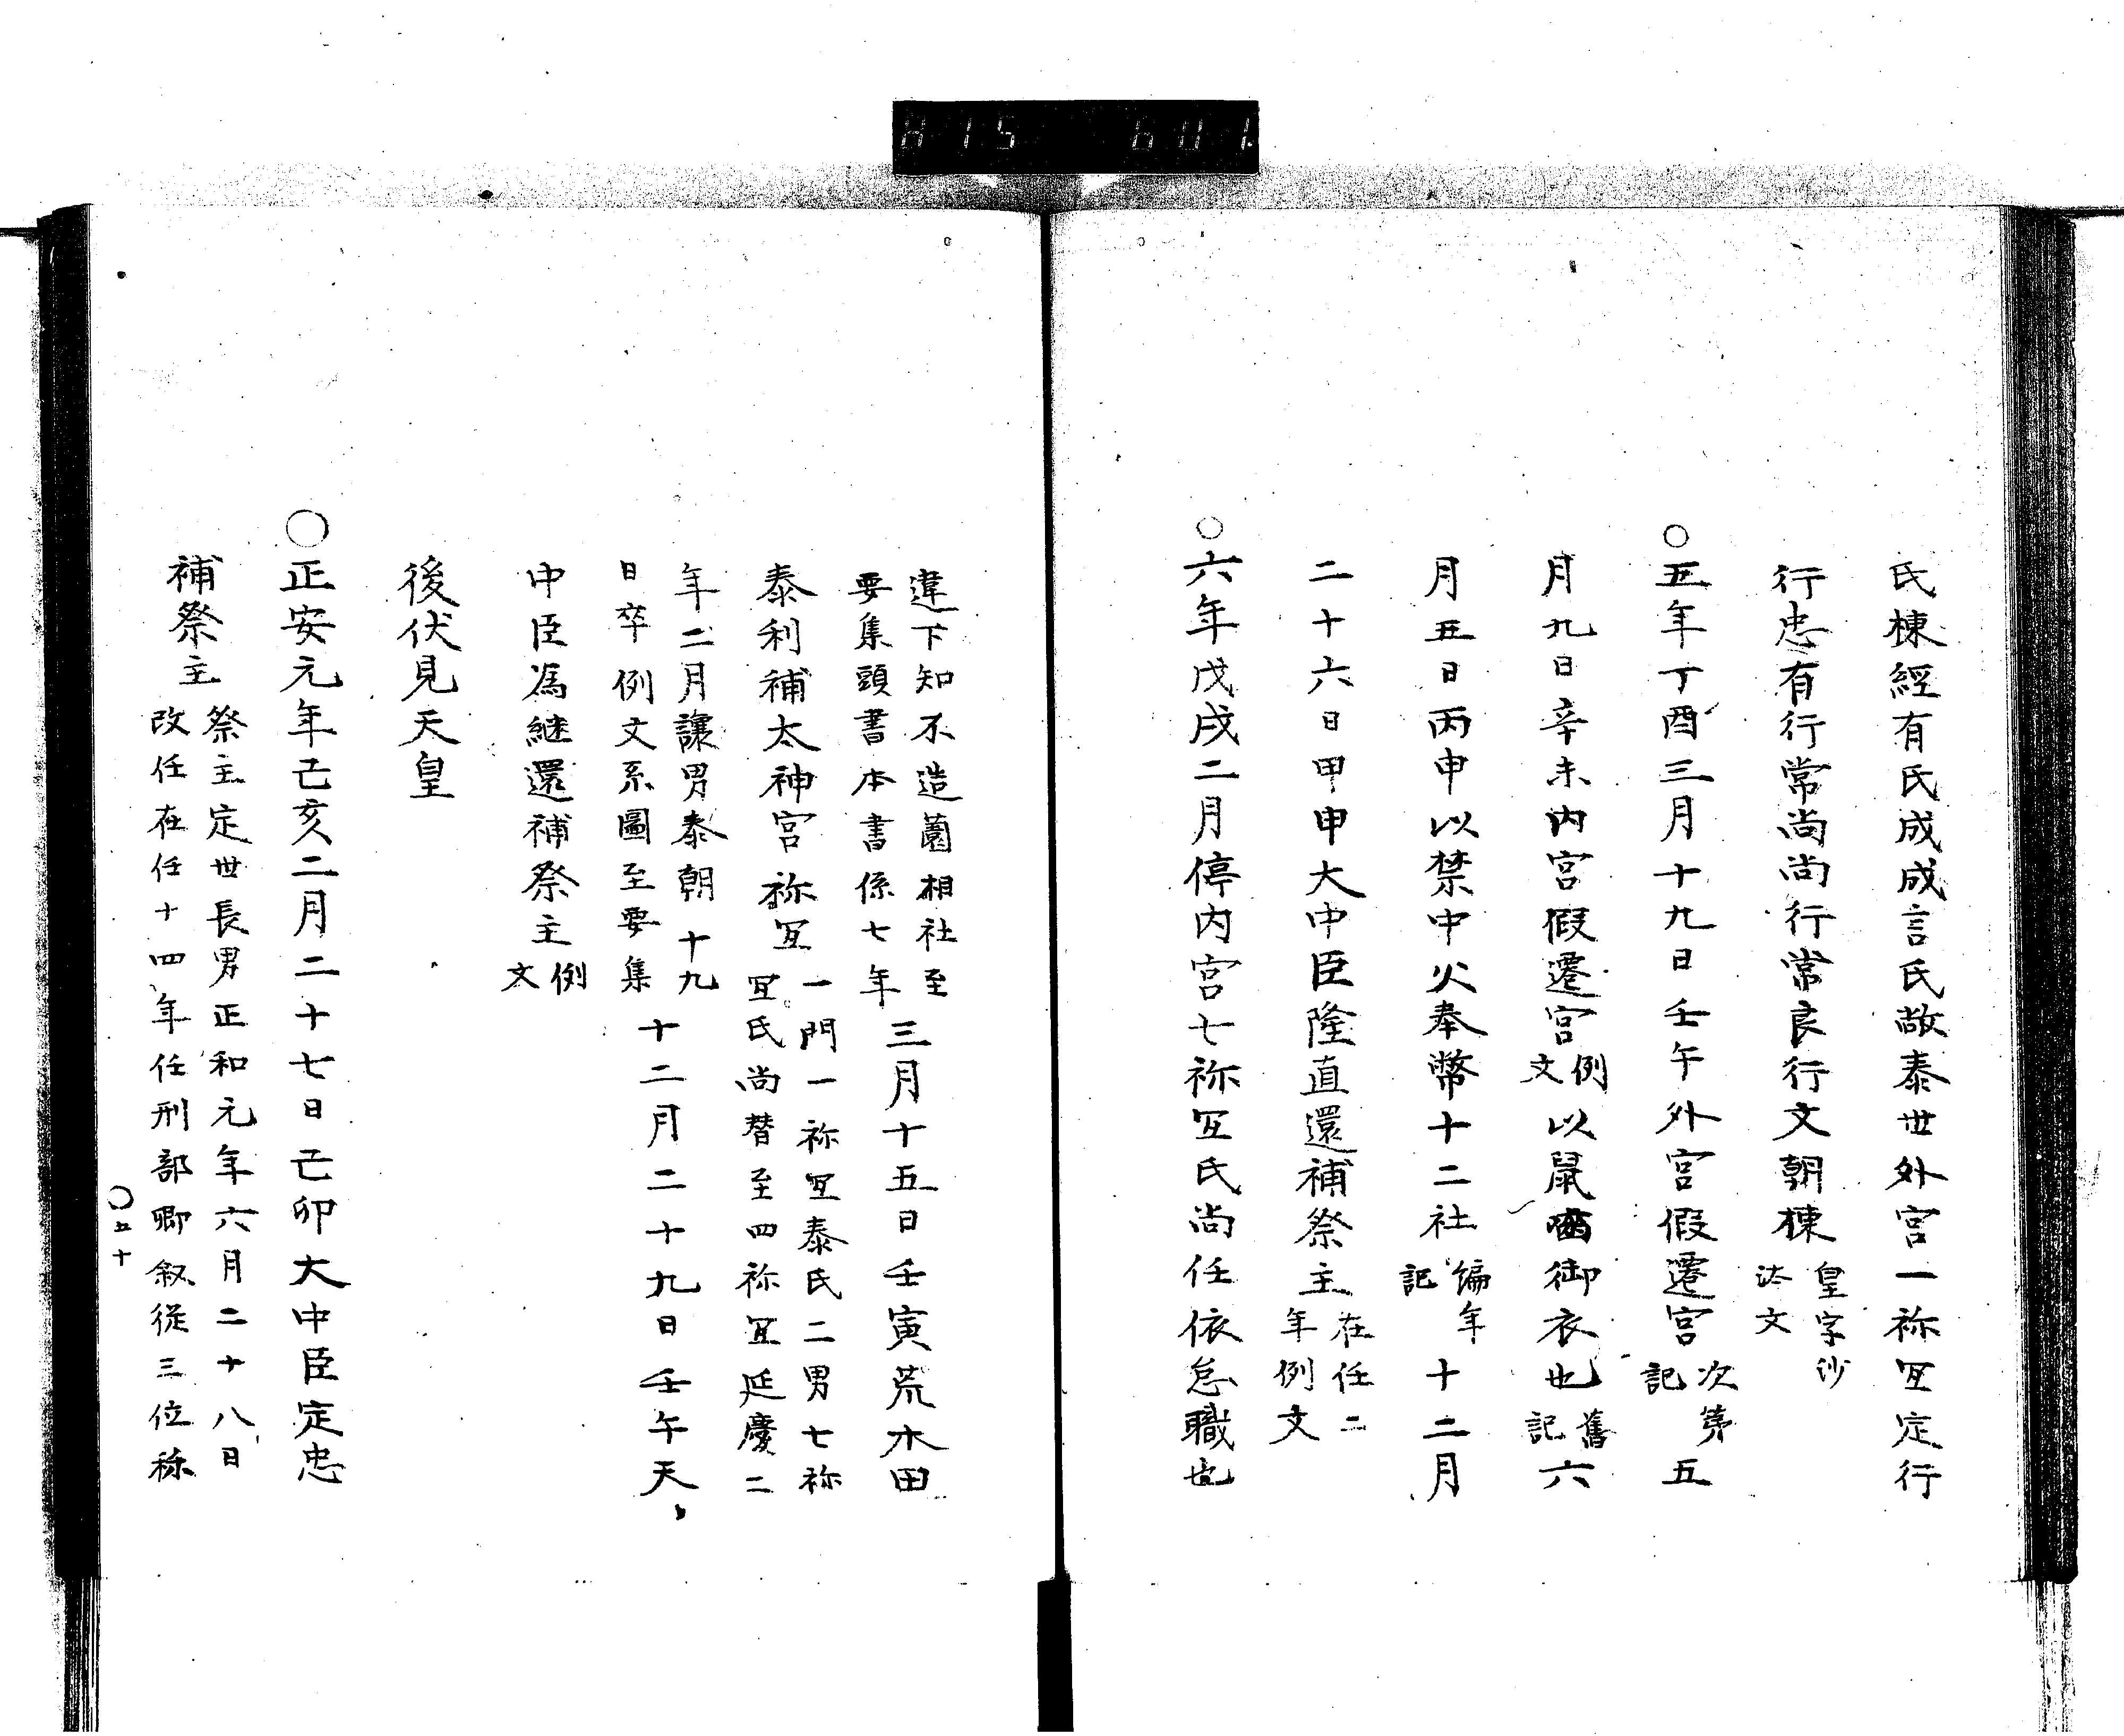 氏棟經有氏成成言氏敞泰世外宮一祢冝定行
行忠有行常尚尚行常良行文朝棟 皇字沙汰文
○五年丁酉三月十九日壬午外宮假遷宮 次第記 五
月九日辛未內宮假遷宮 例文 以鼠噛御衣也 舊記 六
月五日丙申以禁中火奉幣十二社 編年記 十二月
二十六日甲申大中臣隆直還補祭主 在任二年例文
○六年戊戌二月停内宮七祢冝氏尚任依怠職也
違下知不造薗相社至
要集頭書本書係七年
三月十五日壬寅荒木田
泰利補太神宮祢冝
一門一祢冝泰氏二男七祢
冝氏尚替至四祢冝延慶二
年二月讓男泰朝十九
日卒例文系圖至要集
十二月二十九日壬午天、
中臣為継還補祭主 例文
後伏見天皇
○正安元年己亥二月二十七日己卯大中臣定忠
補祭主
祭主定世長男正和元年六月二十八日
改任在任十四年任刑部卿叙從三位称
○五十
H15 601.